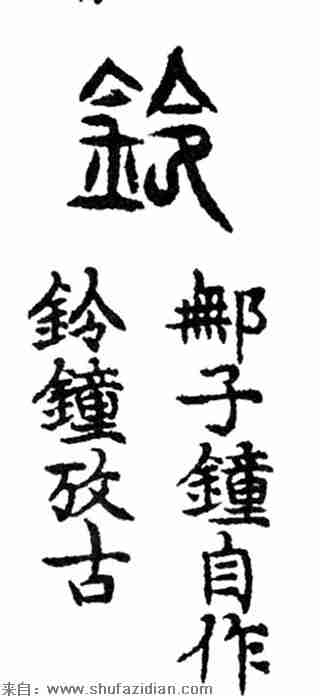 鈴
鄦子鐘自作
鈴鐘攷古
来自：www.shufazidian.com